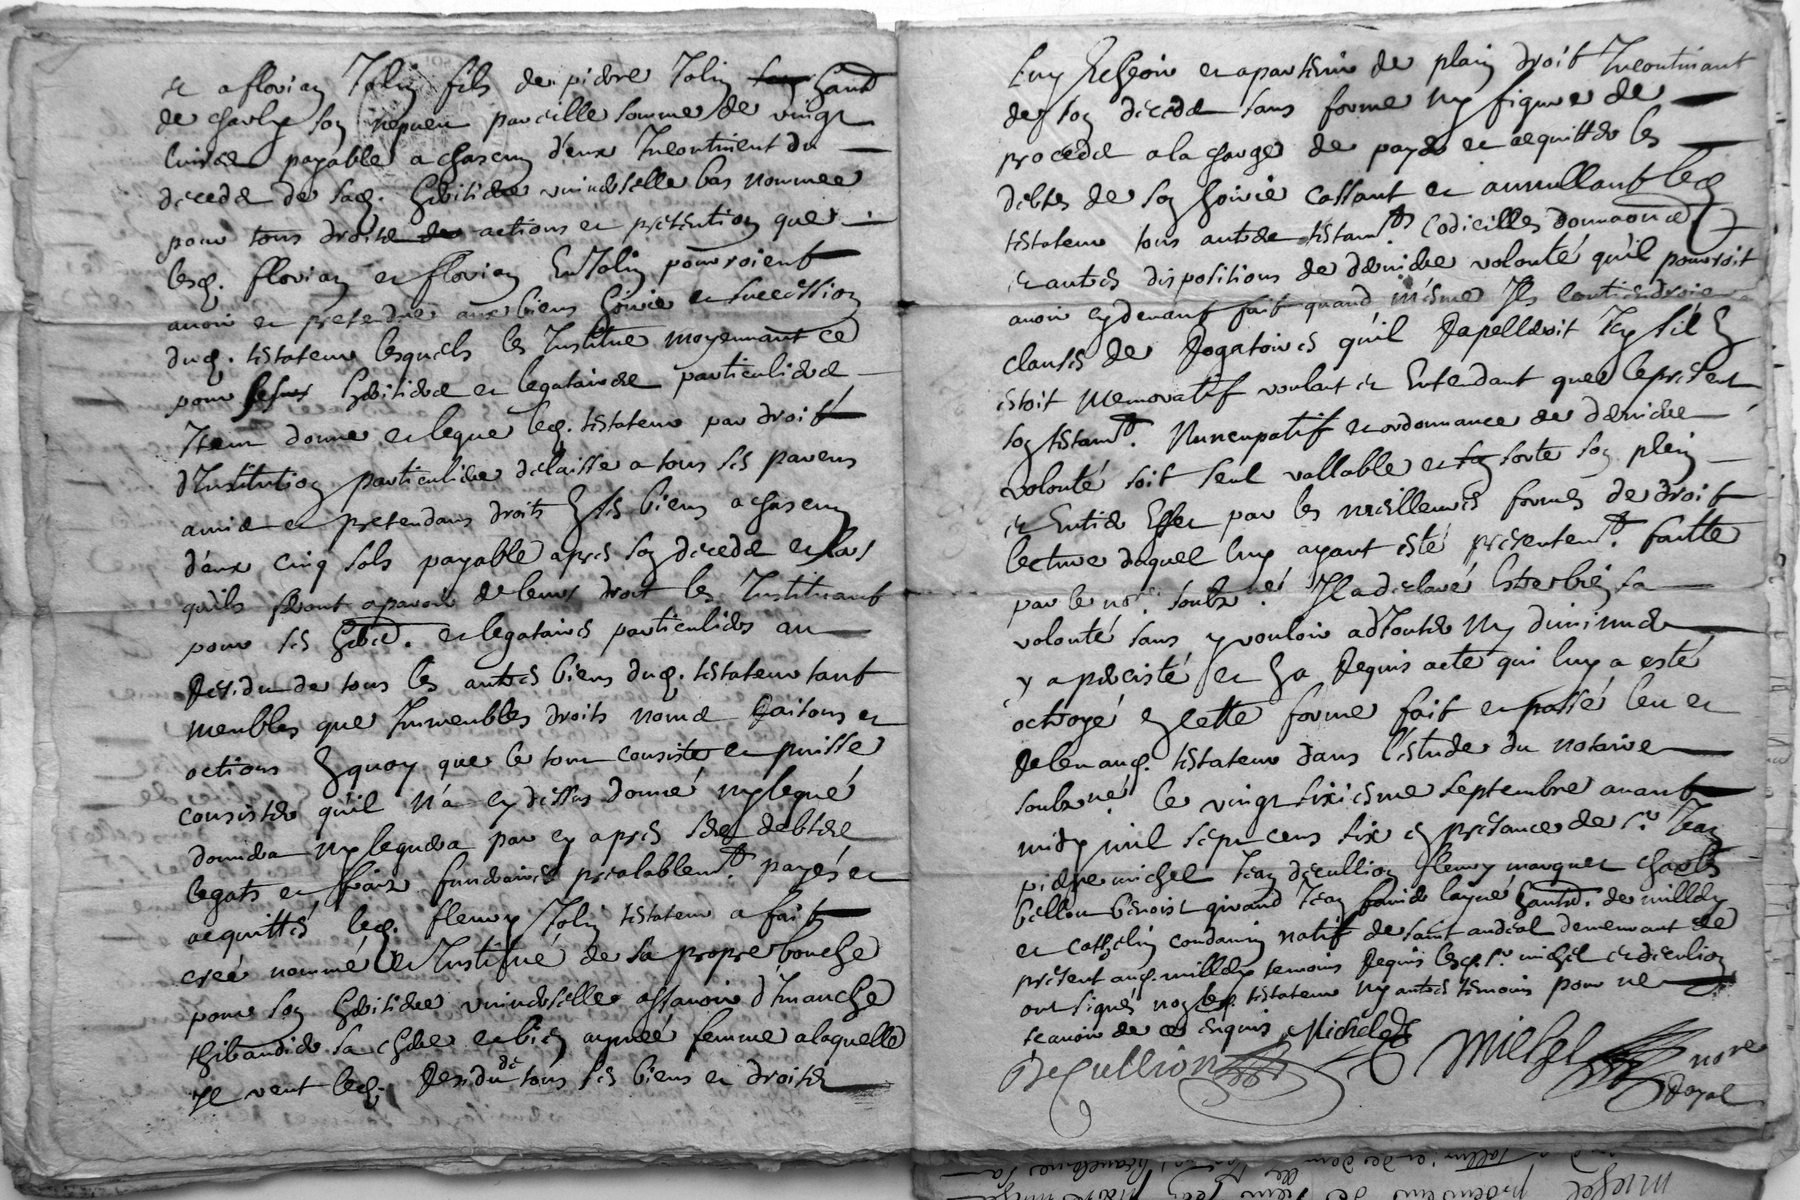 et a florian Jolin fils de pierre Jolin hand
de charly son nepueu pareille somme de vingt
livres payable a chascun d'eux Incontinent du
decedz de sad. heritiere universelle bas nommee
pour tous droits actions et pretention que
lesd. florian et florian Jolin pourroient
avoir et pretendre aux biens hoirie et succession
dud. testateur lesquels les Institue moyennant ce
pour heritiers et legataires particuliers
Item donne et legue led. testateur par droit
d'Institution particuliere delaisse a tous ses parens
amis et pretendans droits en ses biens a chascun
d'eux cinq sols payable apres son decedz et lors
qu'ils feront aparoir de leurs droit les Instituant
pour ses herit. et legataires particuliers au
Residu de tous les autres biens dud. testateur tant
meubles que Immeubles droits noms Raisons et
actions En quoy que le tout consiste et puisse
consister qu'il n'a cy dessus donné ny legué
donnera ny leguera par cy apres ses debtes
legats et frais funeraires prealablemt. payés et
acquittés led. fleury Jolin testateur a fait
creé nommé et Institué de sa propre bouche
pour son heritiere universelle assavoir d'Imanche
thibaudier sa chere et bien aymeé femme a laquelle
Il veut led. Residu de tous ses biens et droits
luy Escheoir et apartenir de plain droit Incontinant
des son decedz sans forme ny figure de
procedz a la charge de payer et acquitter les
debtes de son hoirie cassant et annullant led.
testateur tous autres testamts. codicilles donnaons
et autres dispositions de derniere volonté qu'il pourroit
avoir cy devant fait quand mesme Ils contiendroient
clauses de Rogatoires qu'il Rapelleroit Icy s'il En
estoit memoratif voulant et Entendant que le present
son testamt. Nuncupatif et ordonnance de derniere
volonté soit seul vallable et sorte son plein
et Entier Effet par les meilleures formes de droit
lecture duquel luy ayant esté presentemt. faitte
par le not. soubzné Il a declaré Estre bien sa
volonté sans y vouloir adJouter Ny diminuer
y a persisté et En a Requis acte qui luy a esté
octroyé En cette forme fait et passé leu et
Releu aud. testateur dans l'estude du notaire
soubzné le vingt sixiesme septembre avant
midy mil sept cens six En presance de sr. Jean
pierre michel Jean decullion fleury marquet charles
bellon benoist giraud Jean hantz. de millery
et cathelin condamin natif de saint andeol demeurant de
present aud. millery temoins Requis lesd. sr. michel et decullion
ont signés non led. testateur ny autres temoins pour ne
scavoir de ce Enquis Michel
Decullion Michel nore
Royal